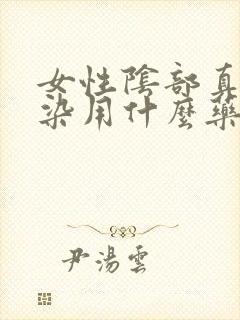 女性陰部真
染用什麼藥
尹湯雲